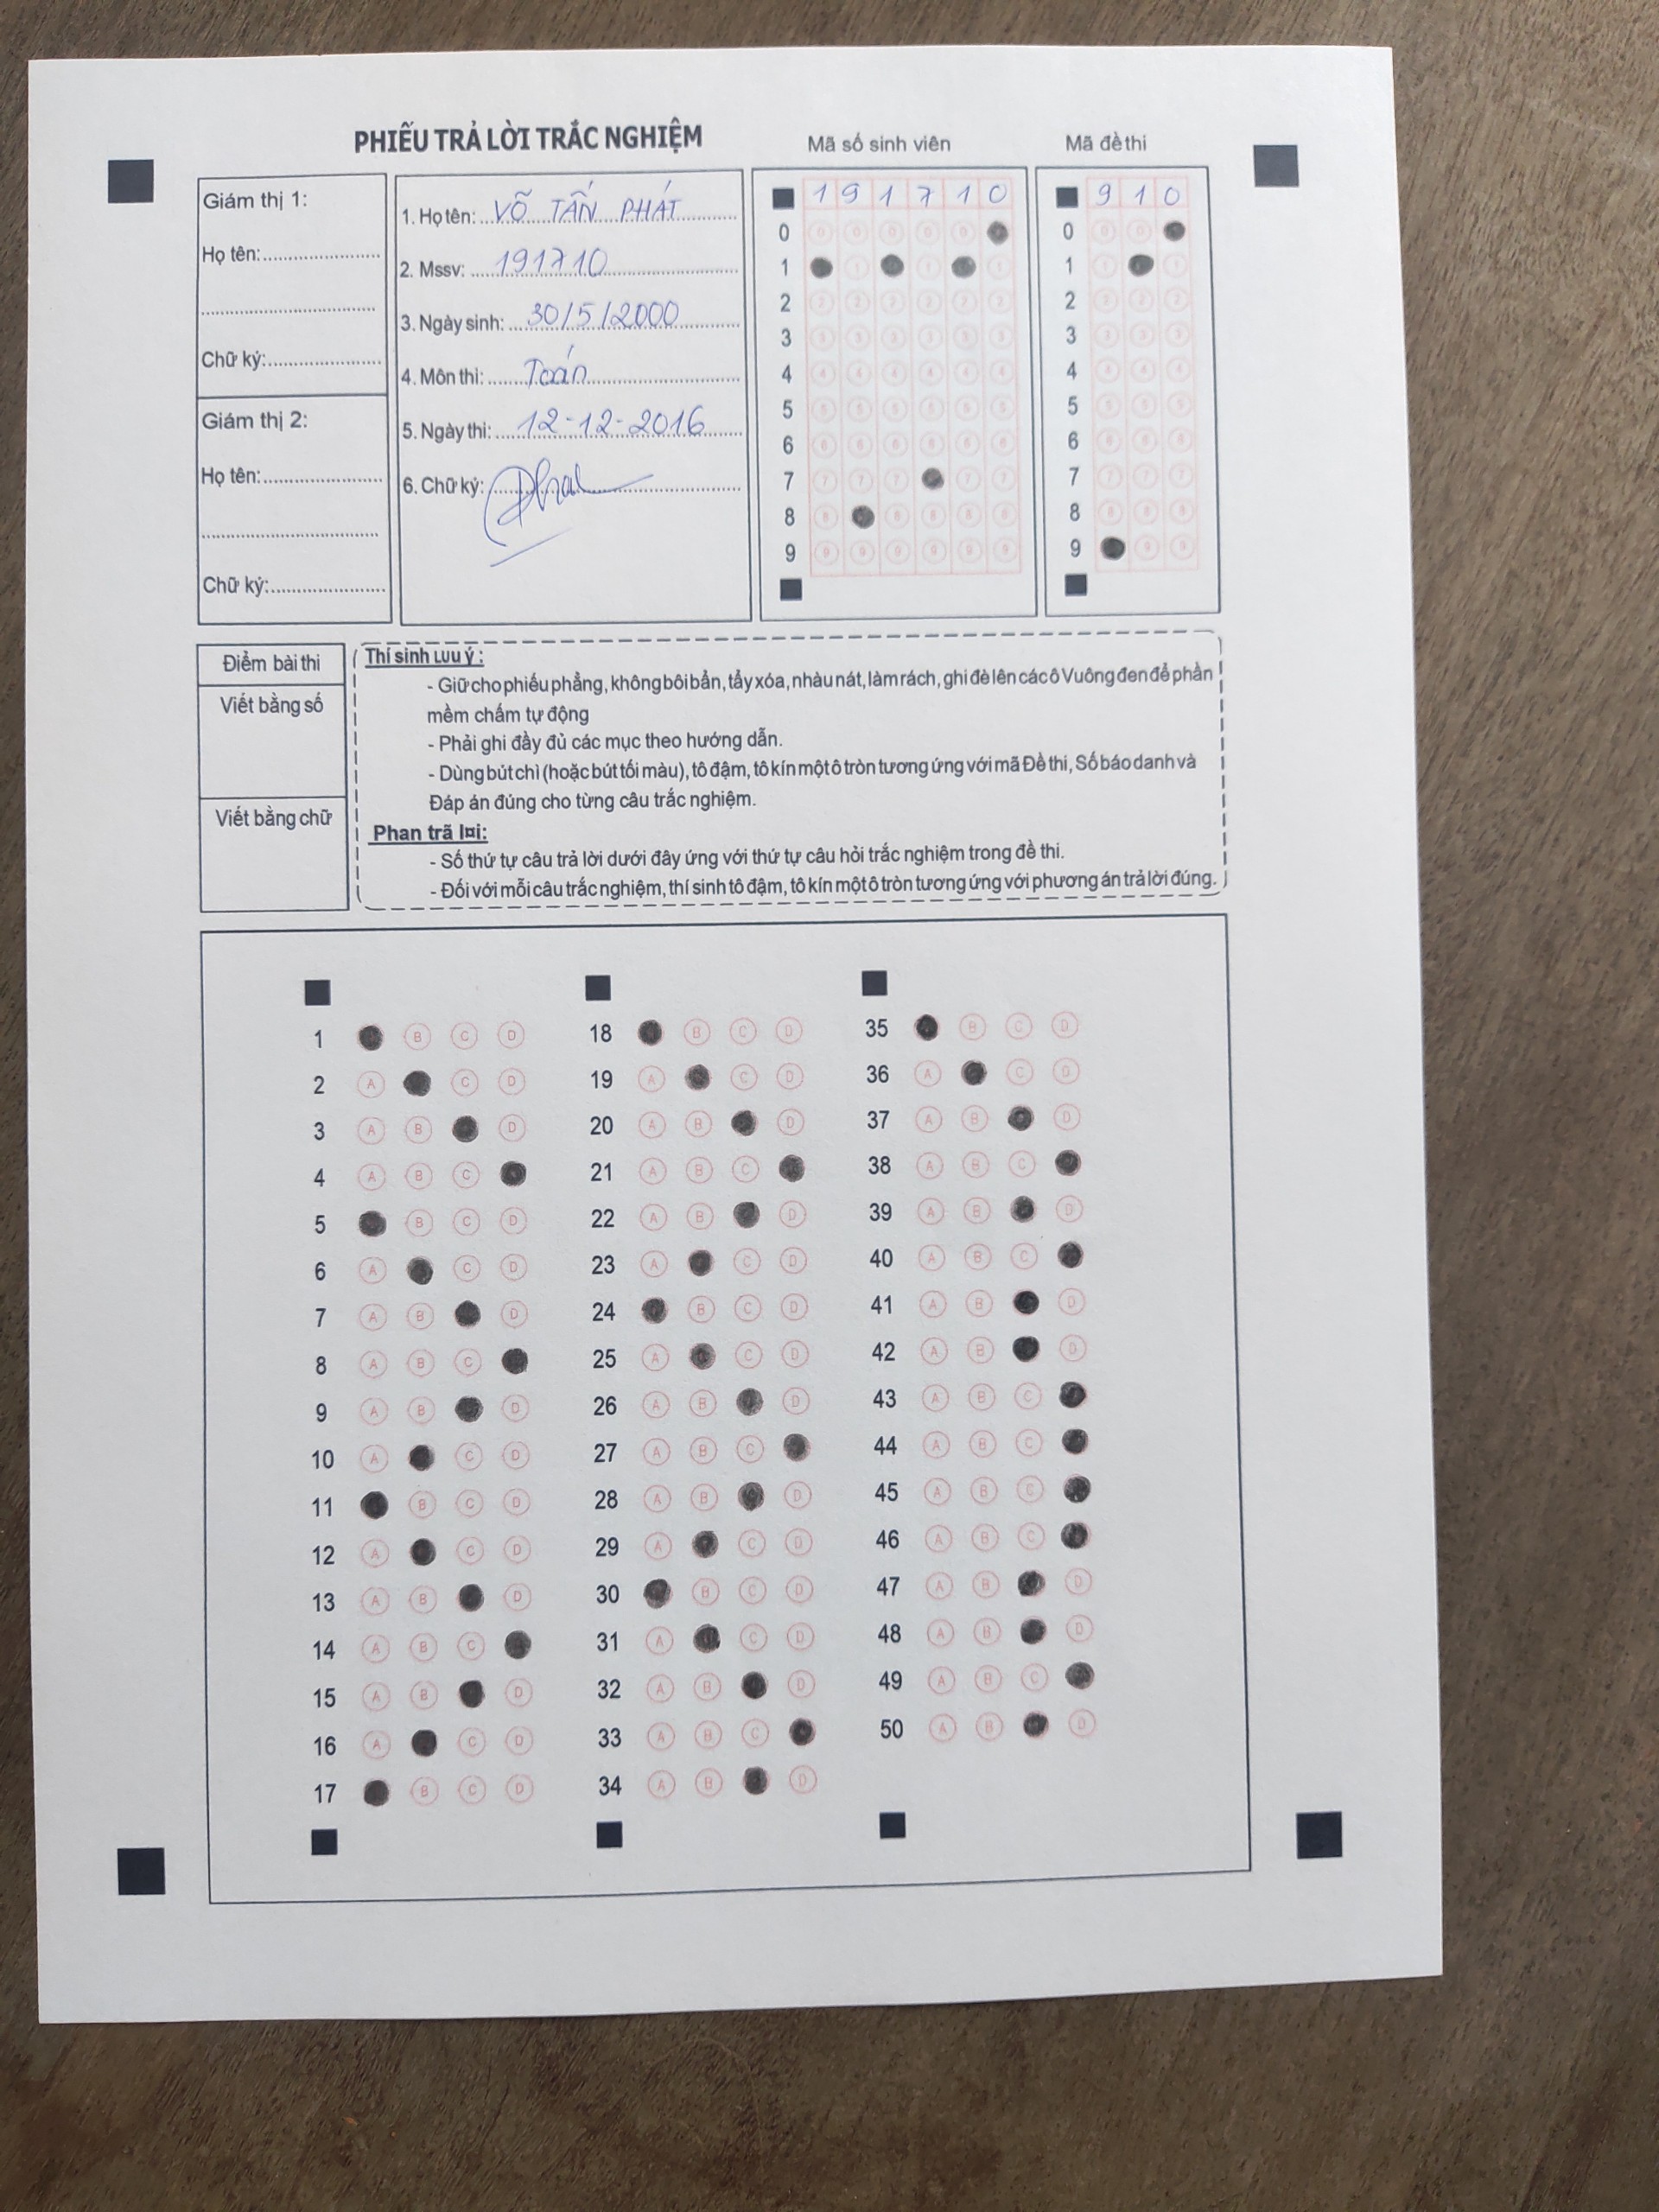 PHIẾU TRẢ LỜI TRẮC NGHIỆM
Giám thị 1:
Họ tên:
Chữ ký:
Giám thị 2:
Họ tên:
Chữ ký:
1. Họ tên: VÕ TẤN PHÁT
2. Mssv: 191710
3. Ngày sinh: 30/5/2000
4. Môn thi: Toán
5. Ngày thi: 12-12-2016
6. Chữ ký: Phat
Mã số sinh viên
1 9 1 7 1 0
0
1
2
3
4
5
6
7
8
9
Mã đề thi
9 1 0
0
1
2
3
4
5
6
7
8
9
Điểm bài thi
Viết bằng số
Viết bằng chữ
Thí sinh Lưu ý :
- Giữ cho phiếu phẳng, không bôi bẩn, tẩy xóa, nhàu nát, làm rách, ghi đè lên các ô Vuông đen để phần
mềm chấm tự động
- Phải ghi đầy đủ các mục theo hướng dẫn.
- Dùng bút chì (hoặc bút tối màu), tô đậm, tô kín một ô tròn tương ứng với mã Đề thi, Số báo danh và
Đáp án đúng cho từng câu trắc nghiệm.
Phan trã l¤i:
- Số thứ tự câu trả lời dưới đây ứng với thứ tự câu hỏi trắc nghiệm trong đề thi.
- Đối với mỗi câu trắc nghiệm, thí sinh tô đậm, tô kín một ô tròn tương ứng với phương án trả lời đúng.
1 B C D
2 A C D
3 A B D
4 A B C
5 B C D
6 A C D
7 A B D
8 A B C
9 A B D
10 A C D
11 B C D
12 A C D
13 A B D
14 A B C
15 A B D
16 A C D
17 B C D
18 B C D
19 A C D
20 A B D
21 A B C
22 A B D
23 A C D
24 B C D
25 A C D
26 A B D
27 A B C
28 A B D
29 A C D
30 B C D
31 A C D
32 A B D
33 A B C
34 A B D
35 B C D
36 A C D
37 A B D
38 A B C
39 A B D
40 A B C
41 A B D
42 A B D
43 A B C
44 A B C
45 A B C
46 A B C
47 A B D
48 A B D
49 A B C
50 A B D